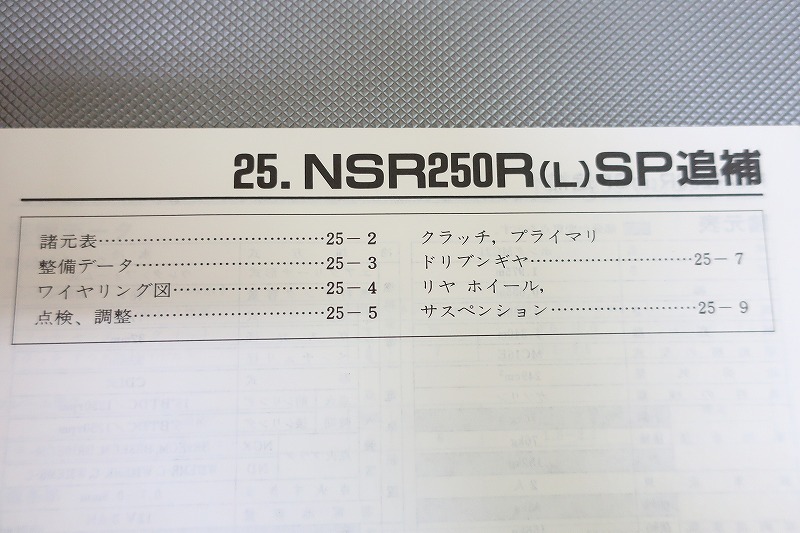 25. NSR250R(L)SP追補
諸元表……………………………25－2
整備データ………………………25－3
ワイヤリング図…………………25－4
点検、調整………………………25－5
クラッチ, プライマリ
ドリブンギヤ……………………25－7
リヤ ホイール,
サスペンション…………………25－9